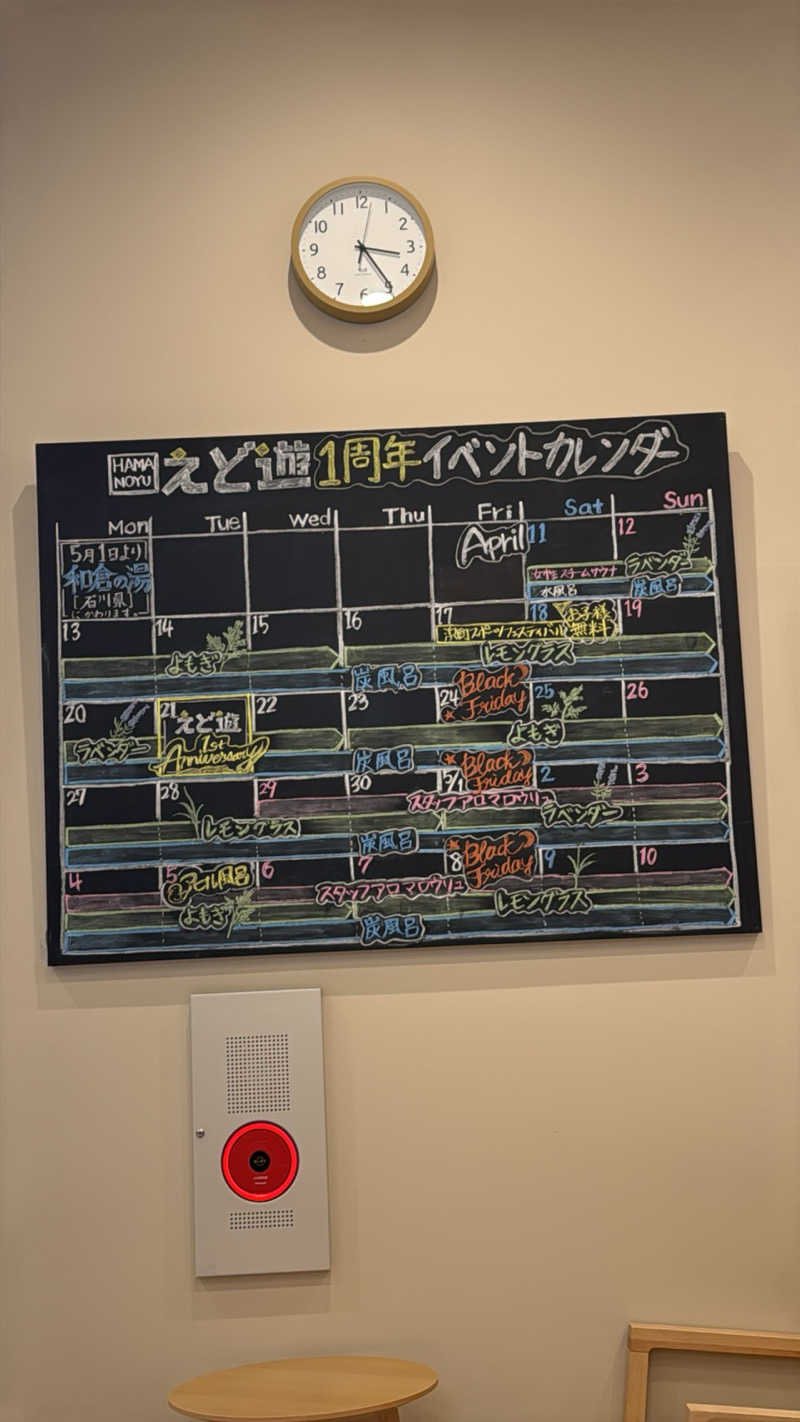 12
11 1
10 2
9 3
8 4
7 5
6
HAMA NOYU えど遊 1周年 イベントカレンダー
Mon Tue Wed Thu Fri Sat Sun
5月1日より
和倉の湯
[石川県]
にかわります。
April 11 12
ラベンダー
女性スチームサウナ
水風呂 炭風呂
13 14 15 16 17 18 19
お子様
無料
スポーツフェスティバル
よもぎ レモングラス
炭風呂
20 21 22 23 24 25 26
Black
Friday
えど遊
1st
Anniversary
ラベンダー よもぎ
炭風呂
27 28 29 30 5/1 2 3
Black
Friday
スタッフアロマロウリュ
レモングラス ラベンダー
炭風呂
4 5 6 7 8 9 10
Black
Friday
風呂
スタッフアロマロウリュ
よもぎ レモングラス
炭風呂